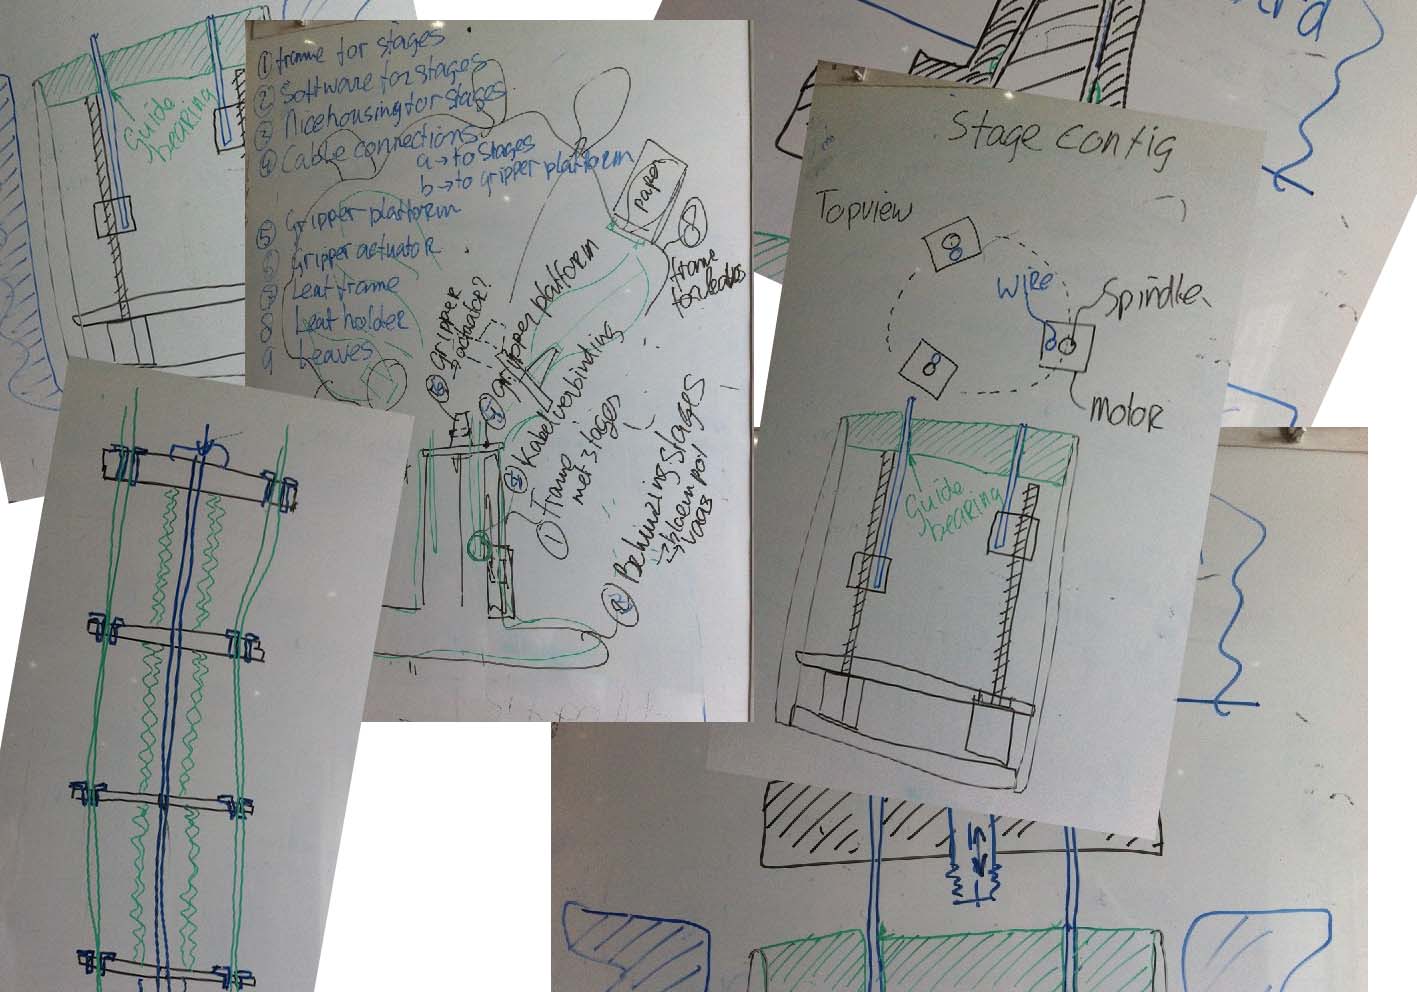 Guide
bearing
① frame for stages
② Software for stages
③ Nice housing for stages
④ Cable connections
a → to stages
b → to gripper platform
⑤ Gripper platform
⑥ Gripper actuator
⑦ Leaf frame
8 Leaf holder
9 Leaves
paper
⑧ frame
for leaves
⑥ gripper
actuator?
⑤ Gripper platform
Kabelverbinding
① Frame
met 3 stages
Behuizing stages
→ bloempot
→ vaas
Stage config
Topview
Wire
Spindle
motor
Guide
bearing